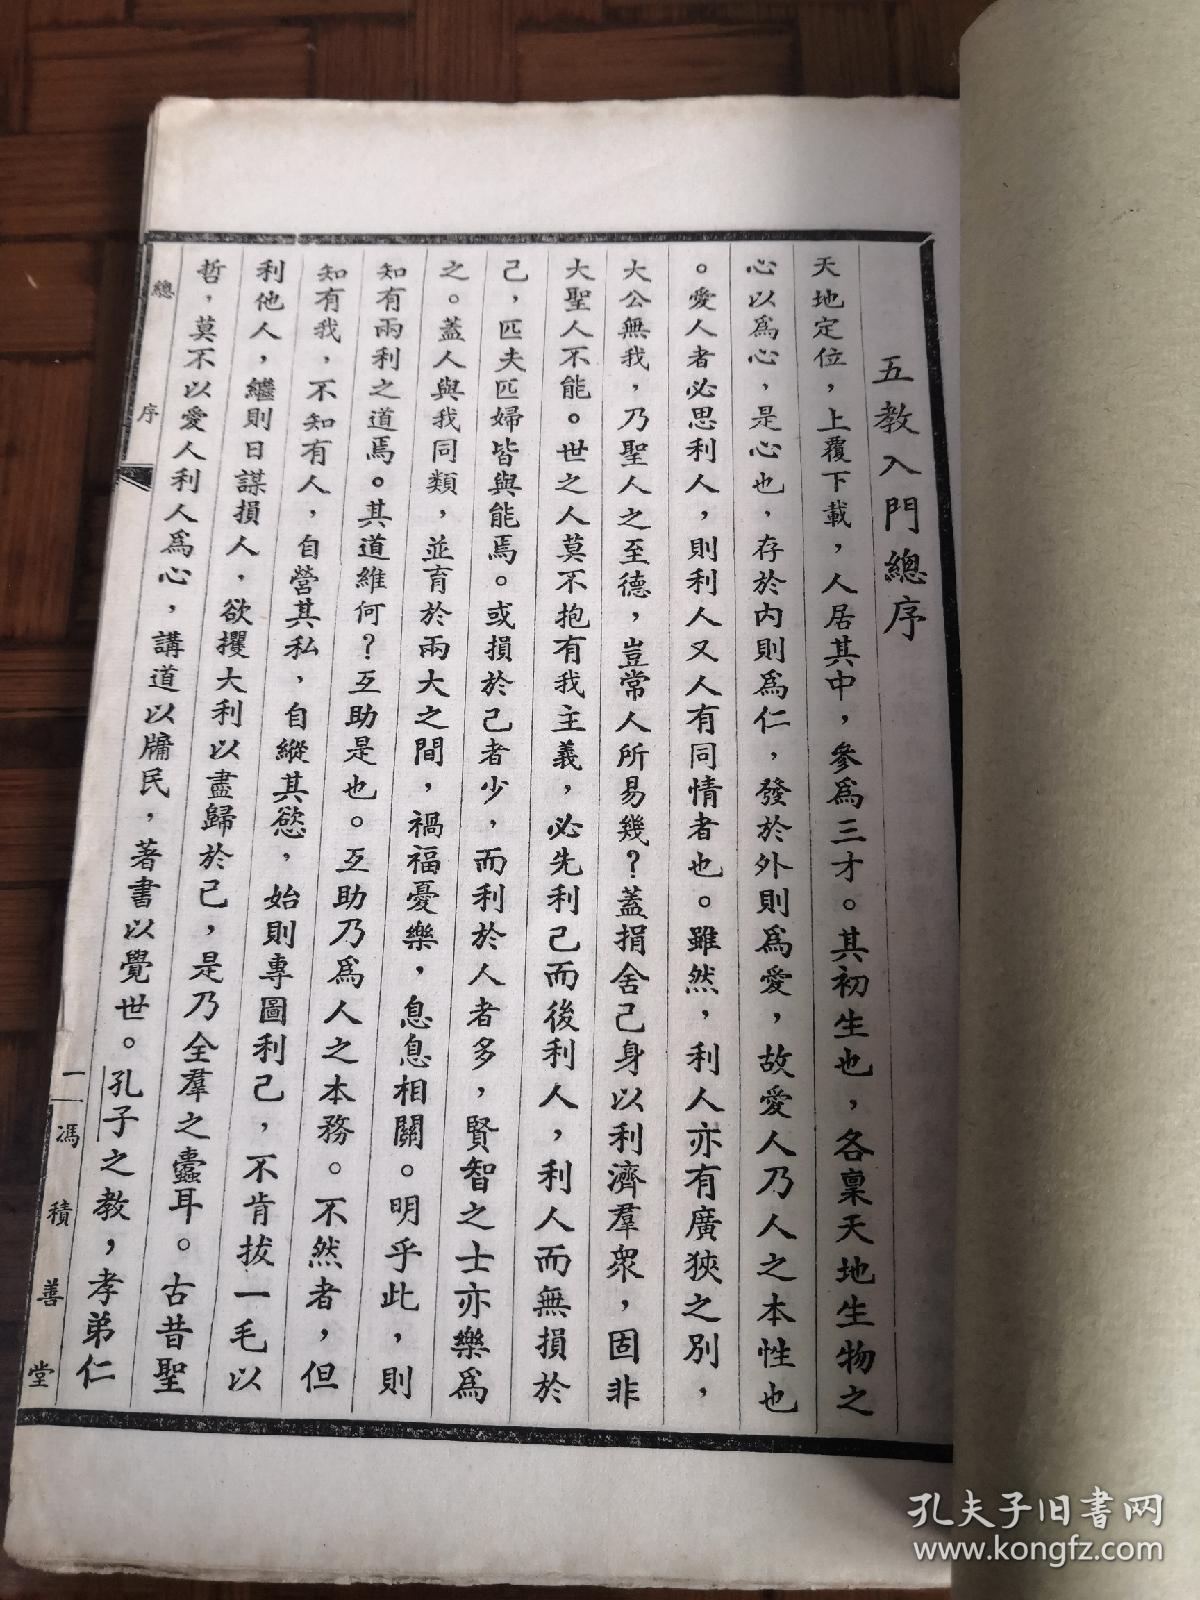 五教入門總序
天地定位，上覆下載，人居其中，參爲三才。其初生也，各稟天地生物之
心以爲心，是心也，存於內則爲仁，發於外則爲愛，故愛人乃人之本性也
。愛人者必思利人，則利人又人有同情者也。雖然，利人亦有廣狹之別，
大公無我，乃聖人之至德，豈常人所易幾？蓋捐舍己身以利濟羣衆，固非
大聖人不能。世之人莫不抱有我主義，必先利己而後利人，利人而無損於
己，匹夫匹婦皆與能焉。或損於己者少，而利於人者多，賢智之士亦樂爲
之。蓋人與我同類，並育於兩大之間，禍福憂樂，息息相關。明乎此，則
知有兩利之道焉。其道維何？互助是也。互助乃爲人之本務。不然者，但
知有我，不知有人，自營其私，自縱其慾，始則專圖利己，不肯拔一毛以
利他人，繼則日謀損人，欲攫大利以盡歸於己，是乃全羣之蠹耳。古昔聖
哲，莫不以愛人利人爲心，講道以牖民，著書以覺世。孔子之教，孝弟仁
總序
一
馮積善堂
孔夫子旧书网
www.kongfz.com